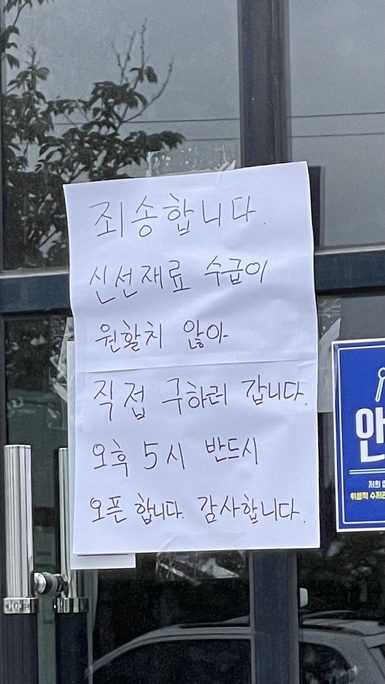 죄송합니다.
신선재료 수급이
원활치 않아
직접 구하러 갑니다.
오후 5시 반드시
오픈 합니다. 감사합니다.
안
저희
위생적 수저